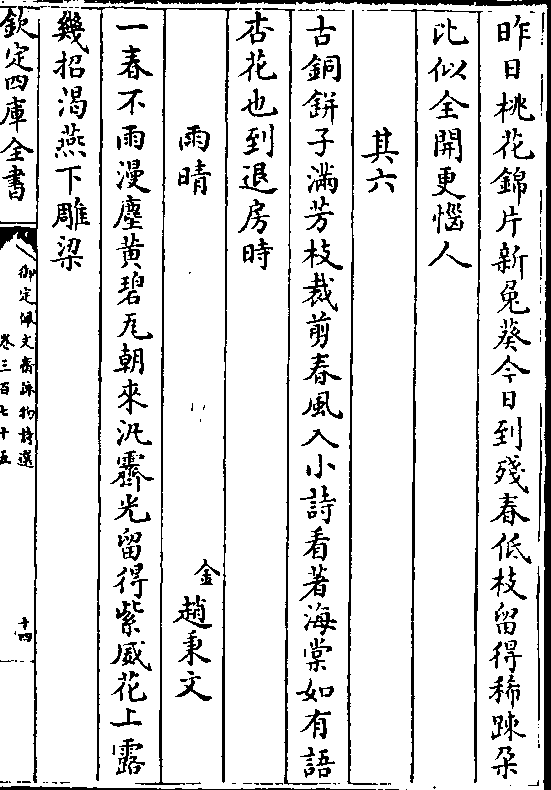 昨日桃花錦片新兔葵今日到殘春低枝留得稀踈朶
比似全開更惱人
其六
古銅餅子滿芳枝裁剪春風入小詩看著海棠如有語
杏花也到退房時
雨晴
金趙秉文
一春不雨漫塵黄碧瓦朝來汎霽光留得紫葳花上露
幾招渴燕下雕梁
欽定四庫全書
御定佩文齋詠物詩選
卷三百七十五
十四